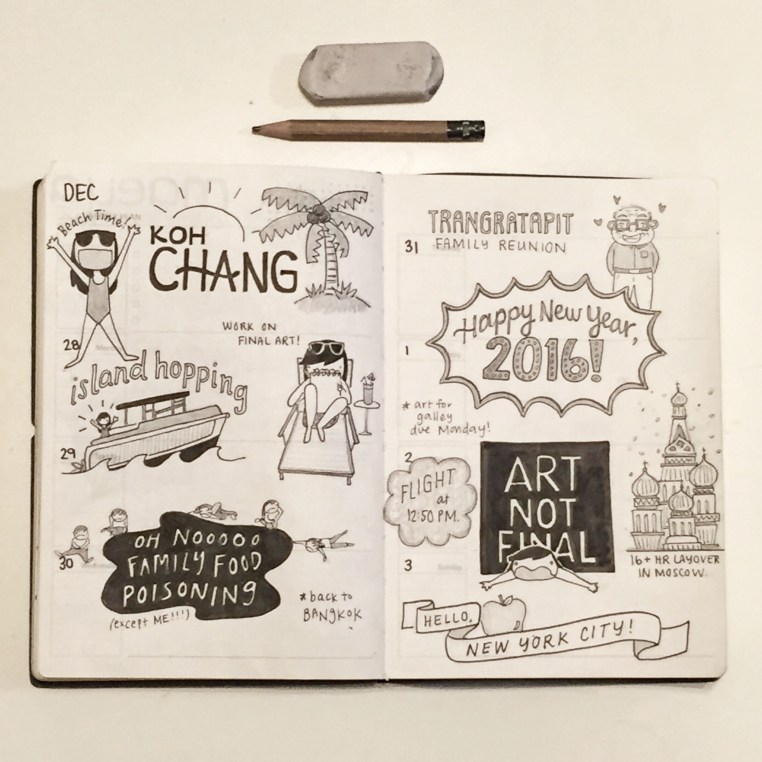 DEC
Beach Time!
KOH
CHANG
28
WORK ON
FINAL ART!
island hopping
29
30
OH NOOOOO
FAMILY FOOD
POISONING
(except ME!!!)
*back to
BANGKOK
TRANGRATAPIT
31 FAMILY REUNION
Happy New Year,
2016!
1
*art for
galley
due Monday!
2
FLIGHT
at
12:50 P.M.
ART
NOT
FINAL
3
16+ HR LAYOVER
IN MOSCOW.
HELLO,
NEW YORK CITY!